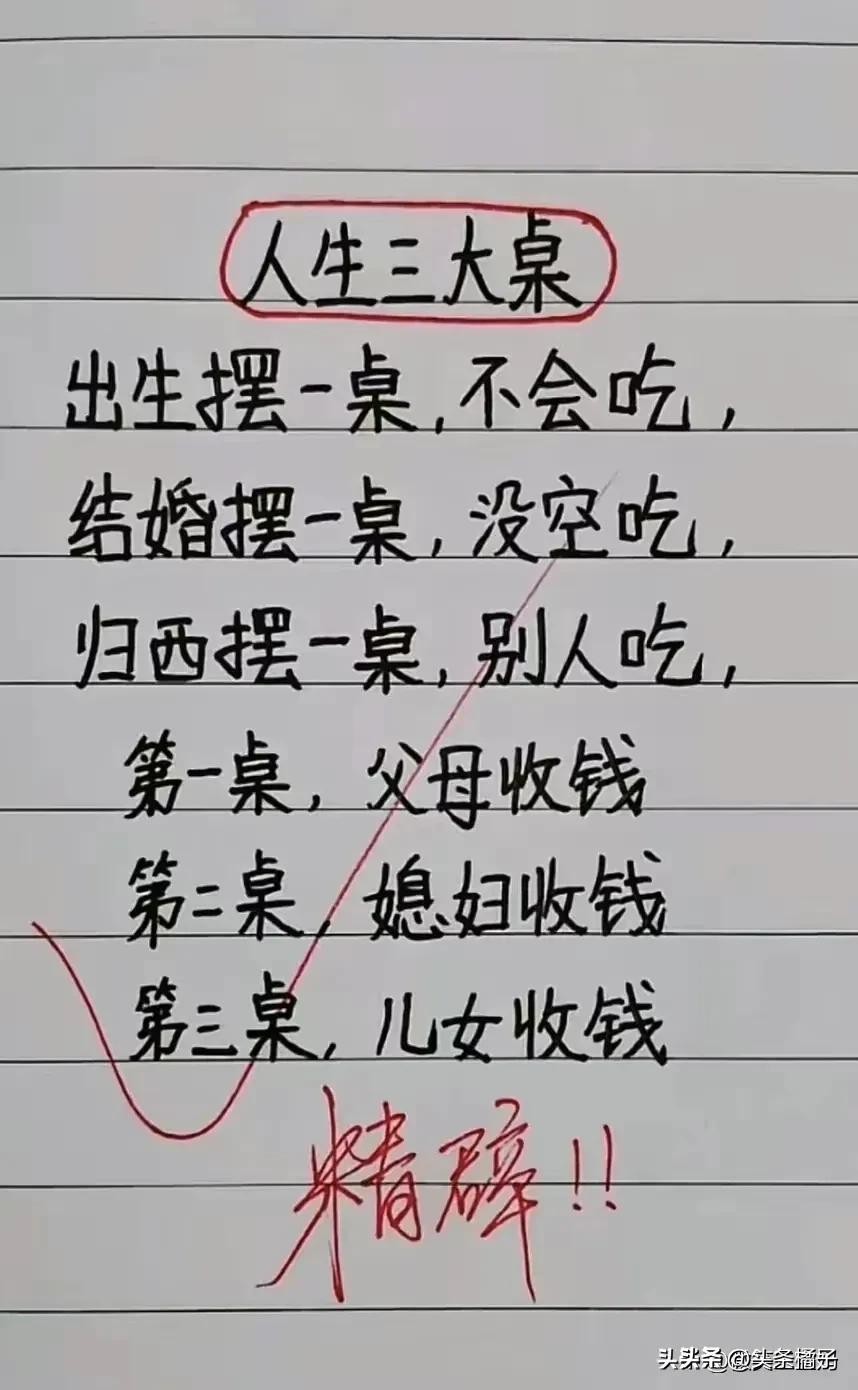 人生三大桌
出生摆一桌,不会吃,
结婚摆一桌,没空吃,
归西摆一桌,别人吃,
第一桌,父母收钱
第二桌,媳妇收钱
第三桌,儿女收钱
精辟!!